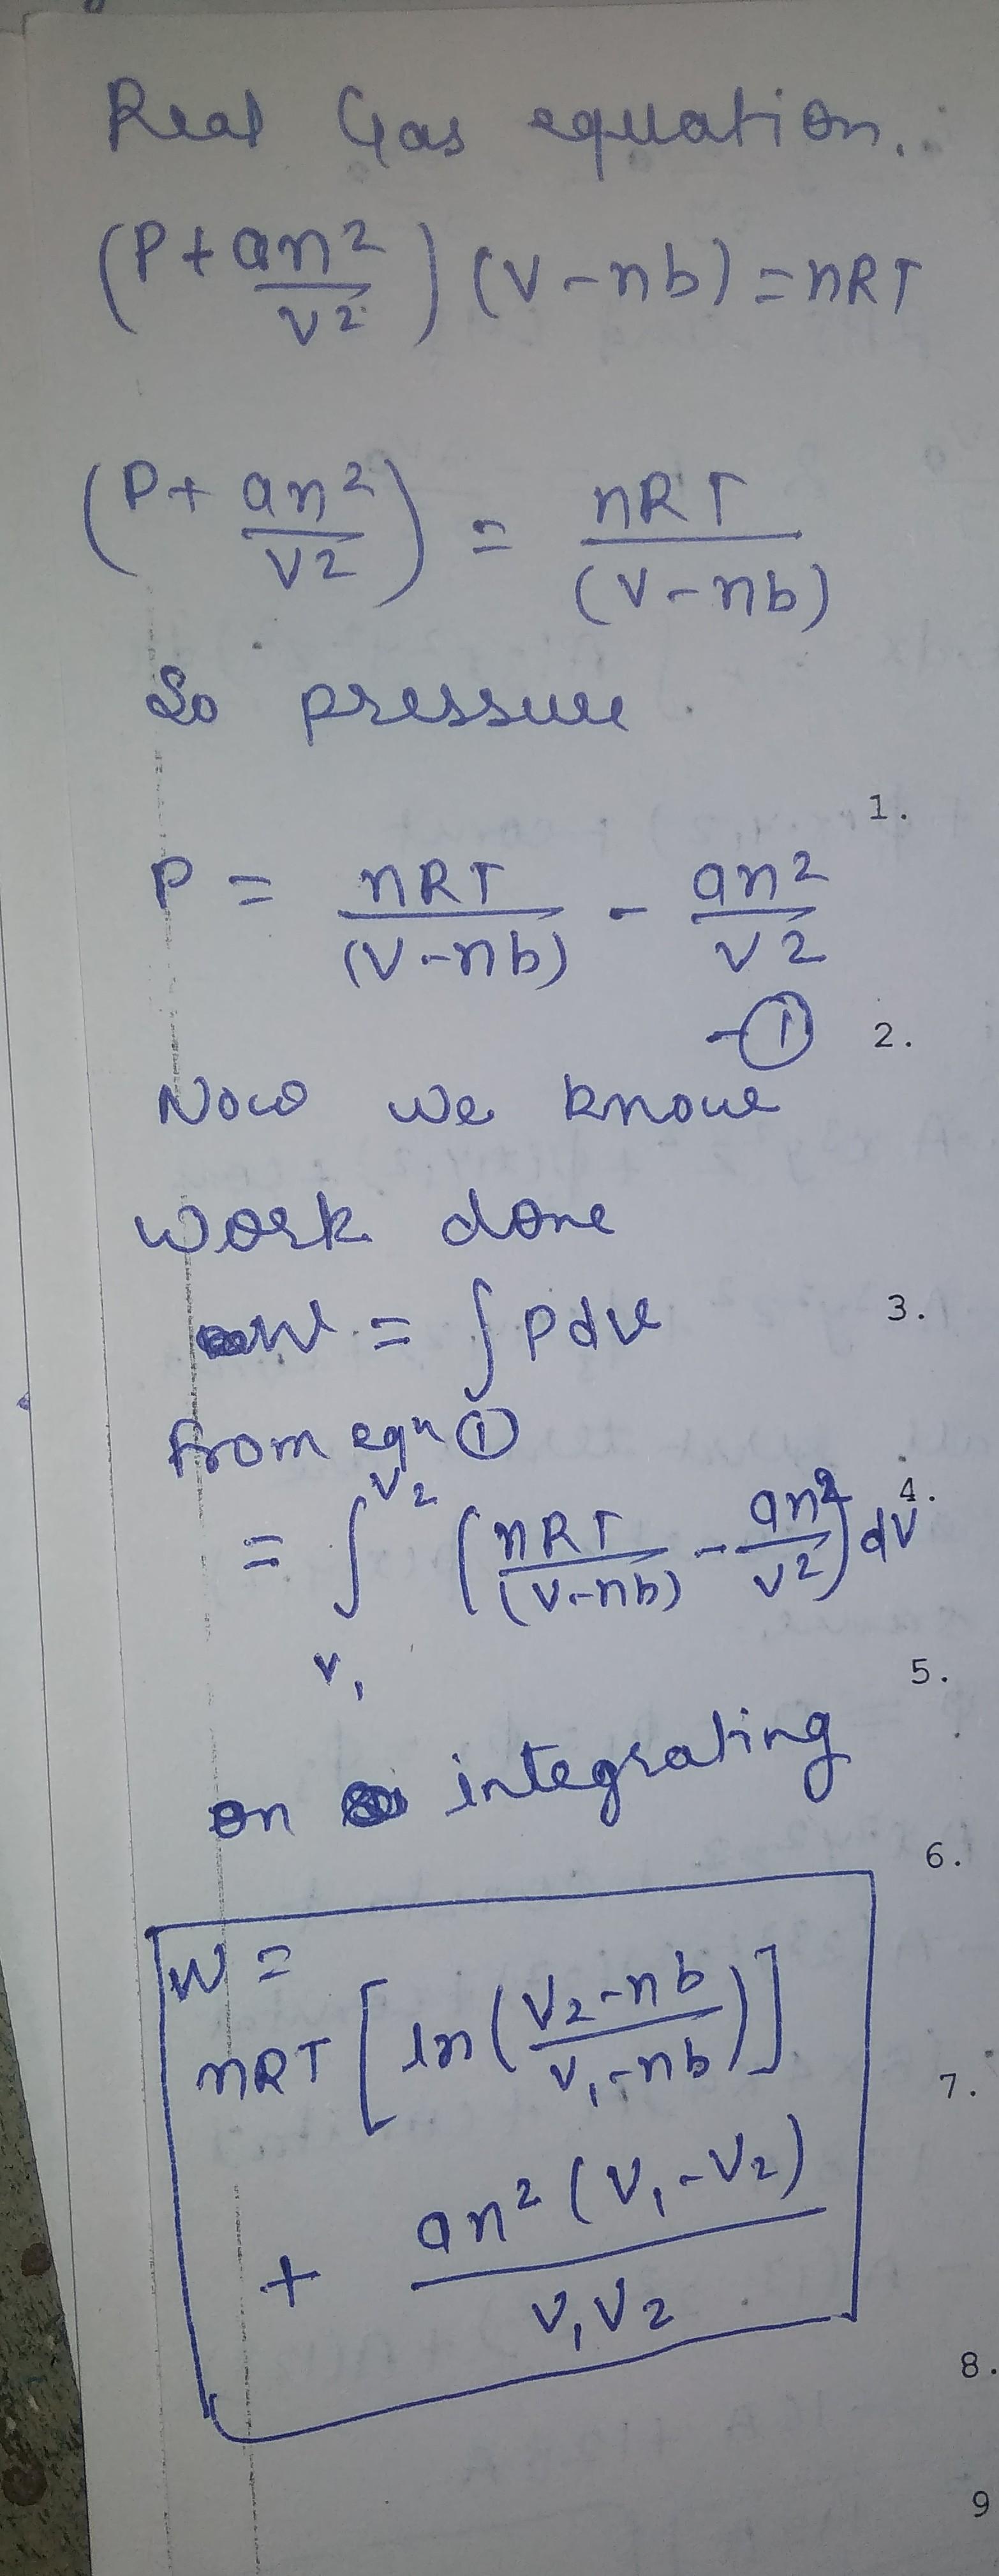 Real Gas equation.
(P + an²/V²) (V - nb) = nRT
(P + an²/V²) = nRT/(V - nb)
So pressure
1.
P = nRT/(V - nb) - an²/V²
- ①
2.
Now we know
work done
W = ∫ P dv
3.
from eqn ①
= ∫_{V₁}^{V₂} (nRT/(V - nb) - an²/V²) dV
4.
5.
on integrating
6.
W =
nRT [ln (V₂ - nb/V₁ - nb)]
7.
+ an² (V₁ - V₂)/V₁V₂
8.
9